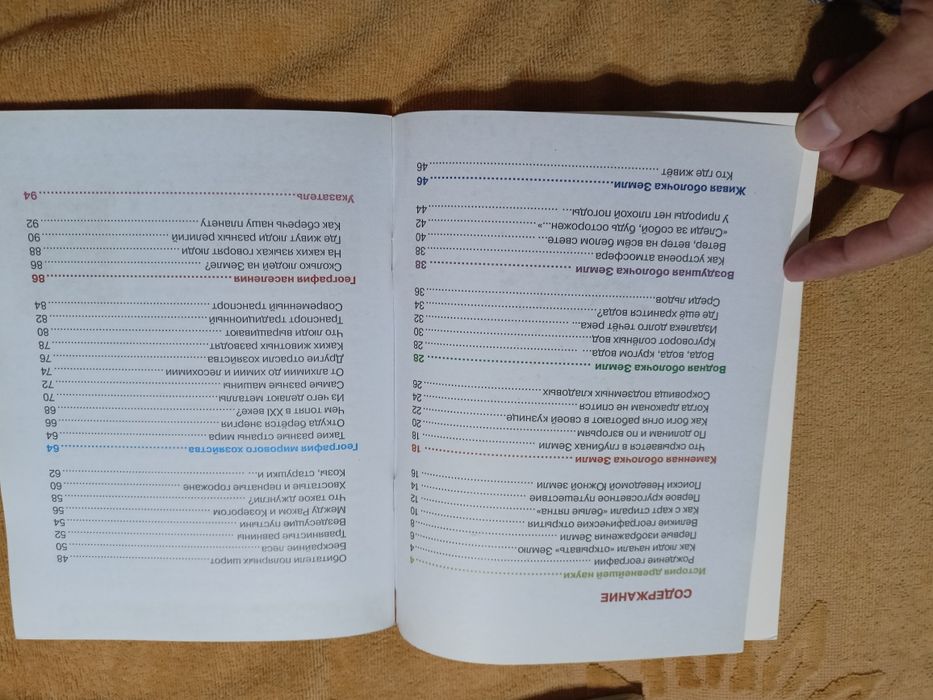 СОДЕРЖАНИЕ
История древнейшей науки 4
Рождение географии 4
Как люди начали «открывать» Землю 4
Первые изображения Земли 6
Великие географические открытия 8
Как с карт стирали «белые пятна» 10
Первое кругосветное путешествие 12
Поиски Неведомой Южной земли 14
16
Каменная оболочка Земли 18
Что скрывается в глубинах Земли 18
По долинам и по взгорьям 20
Как боги огня работают в своей кузнице 22
Когда драконам не спится 24
Сокровища подземных кладовых 26
Водная оболочка Земли 28
Вода, вода, кругом вода... 28
Круговорот солёных вод 30
Издалека долго течёт река... 32
Где ещё хранится вода? 34
Среди льдов 36
Воздушная оболочка Земли 38
Как устроена атмосфера 38
Ветер, ветер на всём белом свете... 40
«Следи за собой, будь осторожен...» 42
У природы нет плохой погоды... 44
Живая оболочка Земли 46
Кто где живёт 46
Обитатели полярных широт 48
Бескрайние леса 50
Травянистые равнины 52
Вездесущие пустыни 54
Между Раком и Козерогом 56
Что такое джунгли? 58
Хвостатые и пернатые горожане 60
Козы, старушки и... 62
География мирового хозяйства 64
Такие разные страны мира 64
Откуда берётся энергия 66
Чем топят в XXI веке? 68
Из чего делают металлы 70
Самые разные машины 72
От алхимии до химии и лесохимии 74
Другие отрасли хозяйства 76
Каких животных разводят 78
Что люди выращивают 80
Транспорт традиционный 82
Современный транспорт 84
География населения 86
Сколько людей на Земле? 86
На каких языках говорят люди 88
Где живут люди разных религий 90
Как сберечь нашу планету 92
Указатель 94